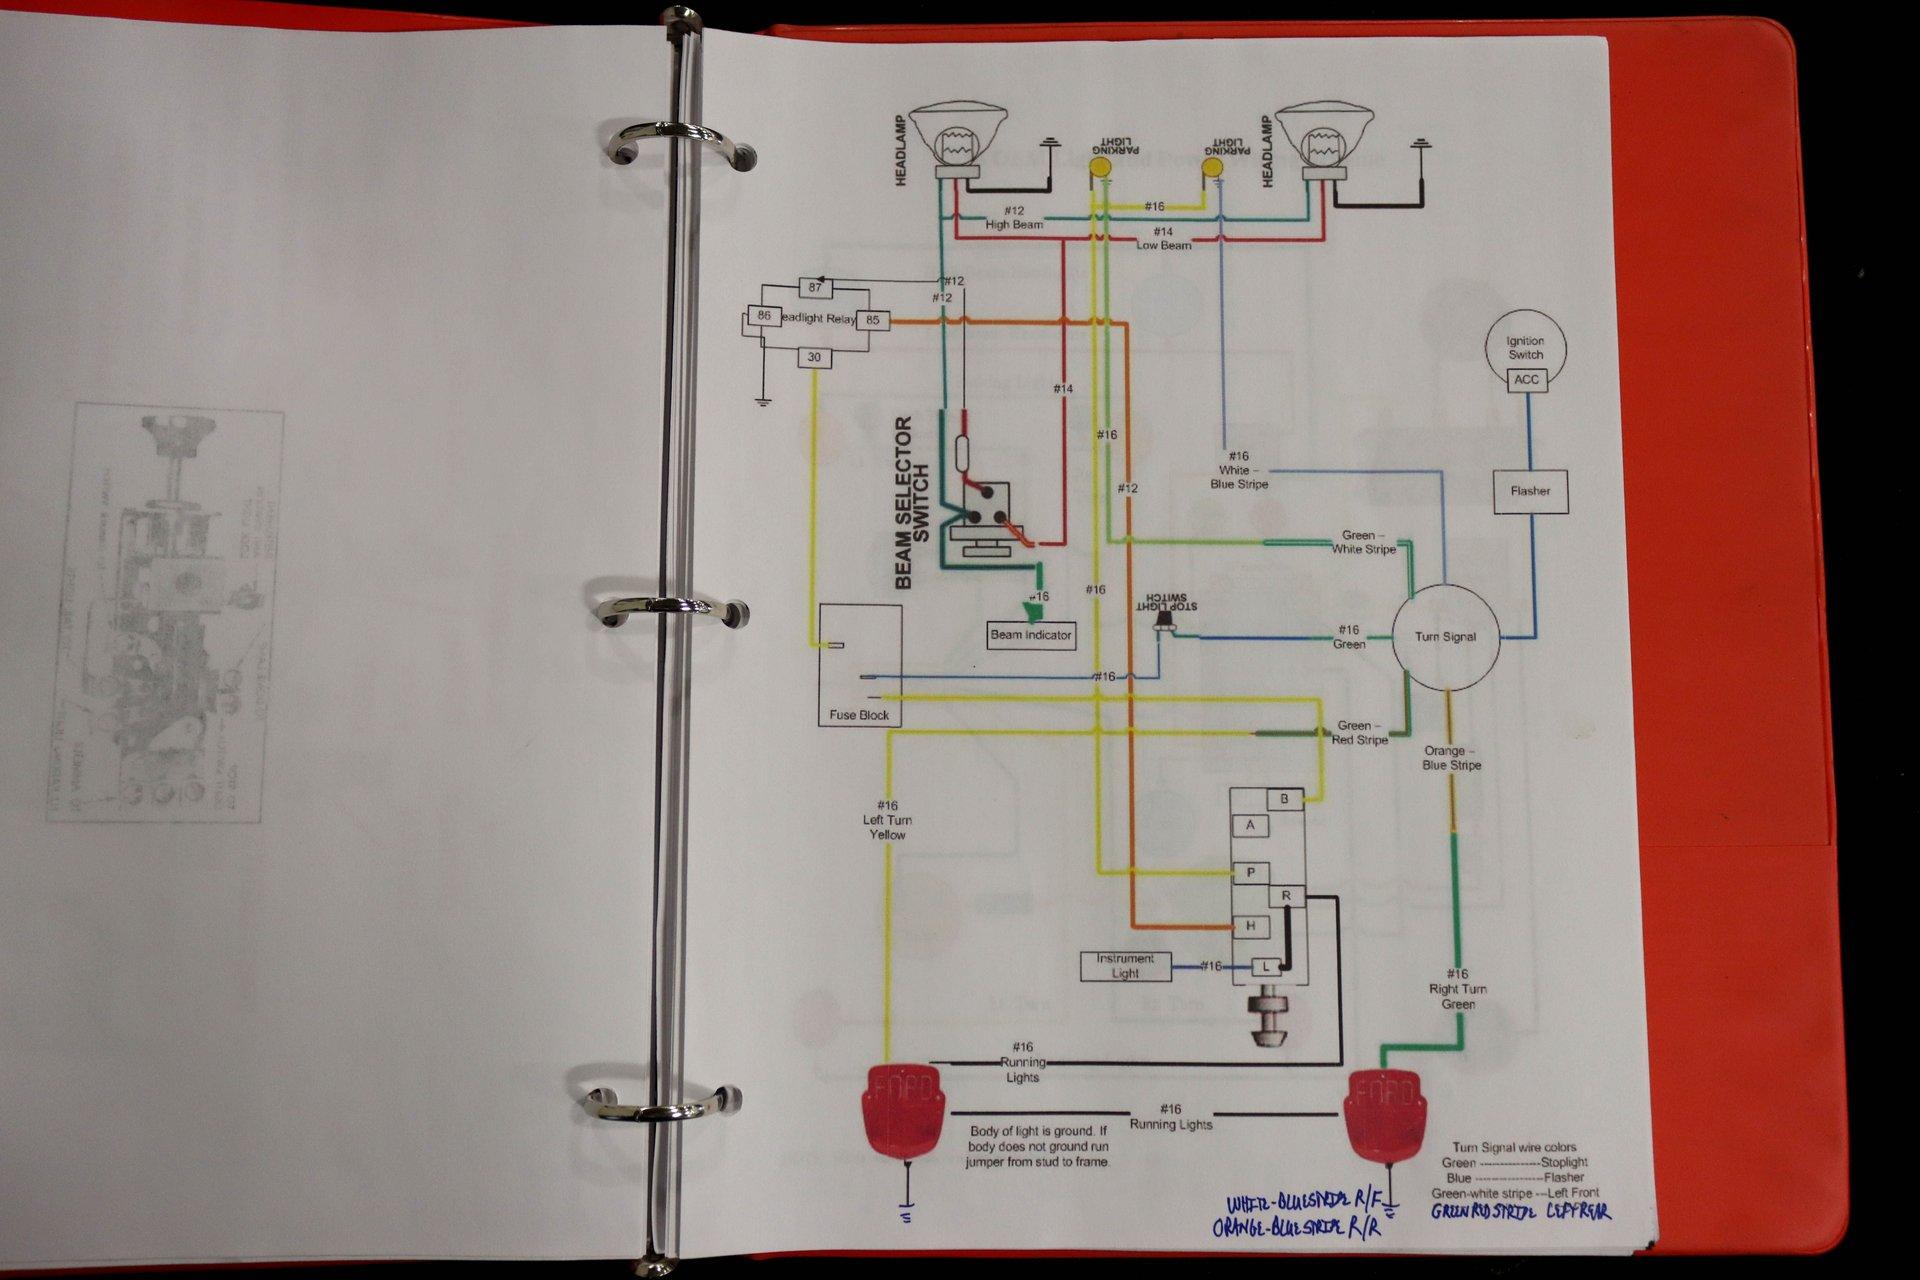 HEADLAMP
PARKING
LIGHT
PARKING
LIGHT
HEADLAMP
#12
High Beam
#16
#14
Low Beam
#12
#12
87
86
eadlight Relay
85
30
#14
#16
#12
#16
White –
Blue Stripe
Ignition
Switch
ACC
Flasher
BEAM SELECTOR
SWITCH
Green –
White Stripe
#16
#16
Beam Indicator
STOP LIGHT
SWITCH
#16
Green
Turn Signal
#16
Fuse Block
Green –
Red Stripe
Orange –
Blue Stripe
#16
Left Turn
Yellow
B
A
P
R
H
L
Instrument
Light
#16
#16
Right Turn
Green
#16
Running
Lights
FORD
FORD
#16
Running Lights
Body of light is ground. If
body does not ground run
jumper from stud to frame.
Turn Signal wire colors
Green --------------Stoplight
Blue ---------------Flasher
Green-white stripe ---Left Front
GREEN RED STRIPE LEFT REAR
WHITE-BLUE STRIPE R/F
ORANGE-BLUE STRIPE R/R